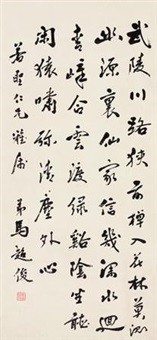 武陵川路狹前棹入花林莫測
幽源裏仙家信幾深水迴
青嶂合雲渡綠谿陰坐聽
閒猿嘯弥清塵外心
仁兄雅屬
弟馬超俊